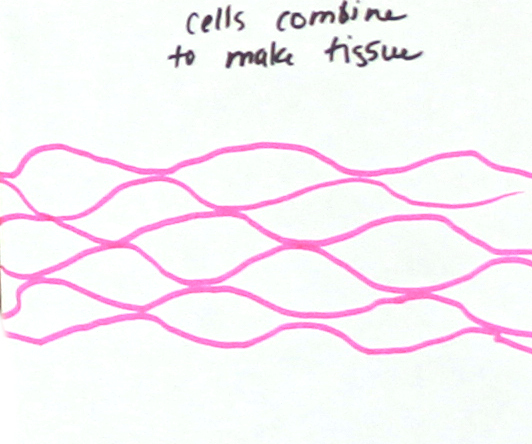 cells combine
to make tissue